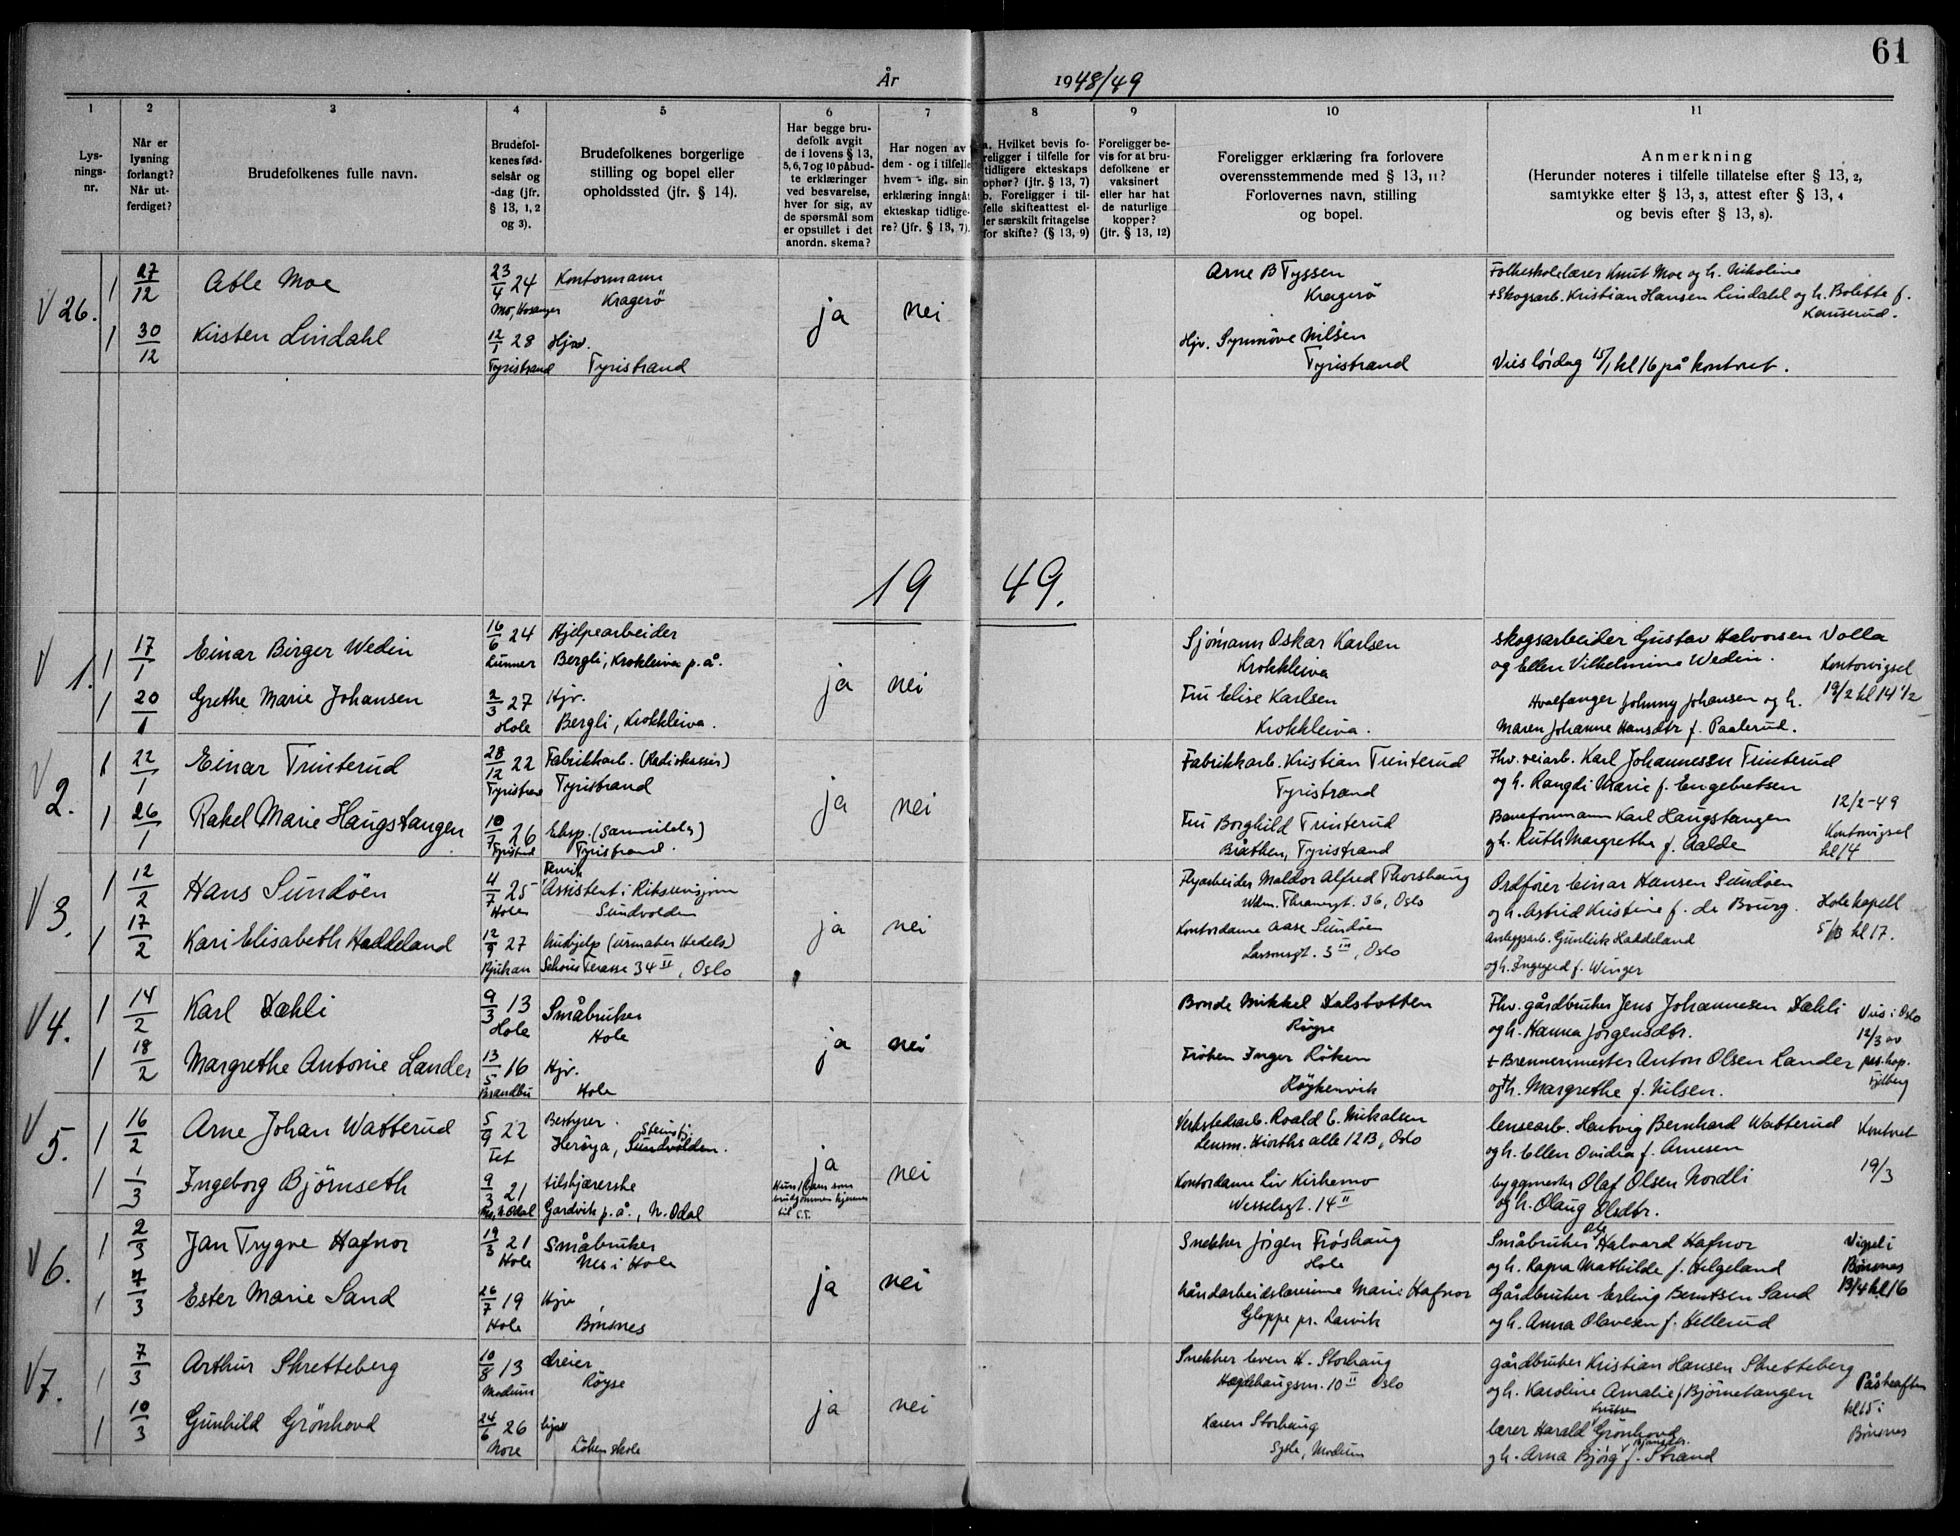 61
År 1948/49
1 2 3 4 5 6 7 8 9 10 11
Lys-
nings-
nr.
Når er
lysning
forlangt?
Når ut-
ferdiget?
Brudefolkenes fulle navn.
Brudefol-
kenes fød-
selsår og
-dag (jfr.
§ 13, 1, 2
og 3).
Brudefolkenes borgerlige
stilling og bopel eller
opholdssted (jfr. § 14).
Har begge bru-
defolk avgit
de i lovens § 13,
5, 6, 7 og 10 påbud-
te erklæringer
ved besvarelse,
hver for sig, av
de spørsmål som
er opstillet i det
anordn. skema?
Har nogen av
dem - og i tilfelle
hvem - iflg. sin
erklæring inngåt
ekteskap tidlige-
re? (jfr. § 13, 7).
a. Hvilket bevis fo-
religger i tilfelle for
tidligere ekteskaps
ophør? (jfr. § 13, 7)
b. Foreligger i til-
felle skifteattest el-
ler særskilt fritagelse
for skifte? (§ 13, 9)
Foreligger be-
vis for at bru-
defolkene er
vaksinert
eller har hat
de naturlige
kopper?
(jfr. § 13, 12)
Foreligger erklæring fra forlovere
overensstemmende med § 13, 11?
Forlovernes navn, stilling
og bopel.
Anmerkning
(Herunder noteres i tilfelle tillatelse efter § 13, 2,
samtykke efter § 13, 3, attest efter § 13, 4
og bevis efter § 13, 8).
V 26.
1 27/12 Atle Moe 23/4 24 Kontormann Kragerö
ja nei
Arne B Tyssen
Kragerö
Folkeskolelærer Knut Moe og h. Nikoline
+ Skogsarb. Kristian Hansen Lindahl og h. Bolette f.
1 30/12 Kirsten Lindahl 12/1 28 Hjv.
Tyristrand Tyristrand
Hjv. Synnöve Nilsen
Tyristrand
Vies lördag 15/1 kl 16 på kontoret.
19 49.
V 1.
1 17/1 Einar Birger Wedin 16/6 24 Hjelpearbeider
Lunner Bergli, Krokkleiva p.å.
ja nei
Sjömann Oskar Karlsen
Krokkleiva
Skogsarbeider Gustav Halvorsen Volla
og Ellen Vilhelmine Wedin.
Kontorvigsel
19/2 kl 14 1/2
1 20/1 Grethe Marie Johansen 2/3 27 Hjv.
Hole Bergli, Krokkleiva.
Fru Elise Karlsen
Krokkleiva.
Hvalfanger Johnny Johansen og h.
Maren Johanne Hansdtr f. Paalerud.
V 2.
1 22/1 Einar Trinterud 28/12 22 Fabrikkarb. (Radiokasser)
Tyristrand
ja nei
Fabrikkarb. Kristian Trinterud
Tyristrand
Fhv. veiarb. Karl Johannessen Trinterud
og h. Rangdi Marie f. Engebretsen
12/2-49
Kontorvigsel
kl 14
1 26/1 Rakel Marie Haugstangen 10/7 26 Eksp.
Tyristrand.
Fru Borghild Trinterud
Bråthen, Tyristrand
Baneformann Karl Haugstangen
og h. Ruth Margrethe f. Aalde
V 3.
1 12/2 Hans Sundöen 4/7 25 Assistent i Riksrevisjonen
Hole Sundvolden
ja nei
Flyarbeider Maldor Alfred Thorshaug
Wdm. Thranesgt. 36, Oslo
Ordförer Einar Hansen Sundöen
og h. Astrid Kristine f. de Bourg.
Hole kapell
5/3 kl 17.
1 17/2 Kari Elisabeth Haddeland 12/9 27
Rjukan Schous Terasse 34 II, Oslo
Kontordame Aase Sundöen
Larsensgt. 3 III, Oslo
Anleggsarb. Gunleik Haddeland
og h. Ingegerd f. Winger
V 4.
1 14/2 Karl Dæhli 9/3 13 Småbruker
Hole Hole
ja nei
Bonde Mikkel Dalsbotten
Röyse
Fhv. gårdbruker Jens Johannesen Dæhli
og h. Hanna Jörgensdtr.
Vies i Oslo
12/3 av
res.kap.
Fjelberg
1 18/2 Margrethe Antonie Lander 13/5 16 Hjv.
Brandbu Hole
Fröken Inger Röken
Röykenvik
+ Brennerimester Anton Olsen Lander
og +h. Margrethe f. Nilsen.
V 5.
1 16/2 Arne Johan Watterud 5/9 22 Bestyrer.
Heröya, Sundvolden.
ja nei
Verkstedsarb. Roald E. Mikalsen
Lensm. Hiorths alle 12B, Oslo
Lensearb. Hartvig Bernhard Watterud
og h. Ellen Ovidia f. Arnesen
Kontoret
19/3
1 1/3 Ingeborg Björnseth 9/3 21 tilskjærerske
Gardvik p.å., N. Odal
Kontordame Liv Kirkemo
Wesselsgt. 14 II
byggmester Olaf Olsen Nordli
og h. Olaug Olsdtr.
V 6.
1 2/3 Jan Trygve Hafnor 19/3 21 Småbruker
Hole Nes i Hole
ja nei
Snekker Jörgen Fröshaug
Hole
Småbruker Ole Halvard Hafnor
og h. Ragna Mathilde f. Helgeland
Vigsel i
Bönsnes
13/4 kl 16
1 7/3 Ester Marie Sand 26/7 19 Hjv
Hole Bönsnes
håndarbeidslærerinne Marie Hafnor
Gloppe pr. Larvik
Gårdbruker Erling Berntsen Sand
og h. Anna Olavesen f. Hellerud
V 7.
1 7/3 Arthur Skretteberg 10/8 13 dreier
Modum Röyse
ja nei
Snekker Even H. Storhaug
Hegdehaugsvn. 10 II Oslo
gårdbruker Kristian Hansen Skretteberg
og h. Karoline Amalie f. Björnetangen
Påskeaften
kl 15 i
Bönsnes
1 10/3 Gunhild Grönhovd 24/6 26
Nore Löken skole
Karen Storhaug
Sysle, Modum
lærer Harald Knutsen Grönhovd
og h. Arna Bjørg f. Strand